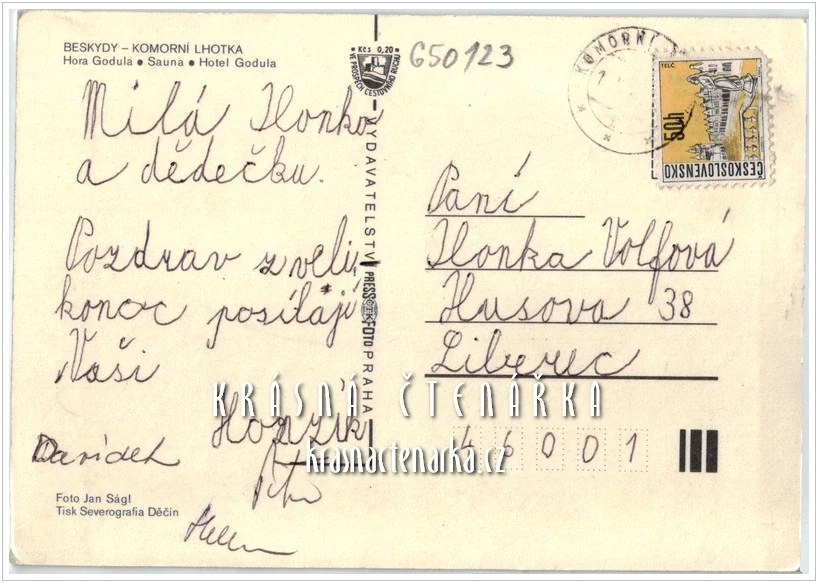 BESKYDY – KOMORNÍ LHOTKA
Hora Godula ● Sauna ● Hotel Godula
Kčs 0,20
VE PROSPĚCH CESTOVNÍHO RUCHU
G50123
KOMORNÍ
TELČ
50h
ČESKOSLOVENSKO
Milá Ilonko
a dědečku.
Pozdrav z veli-
konoc posílají
Vaši
Honzík
Davídek
Petr
Helena
VYDAVATELSTVÍ PRESSFOTO PRAHA
ČTK
Paní
Ilonka Volfová
Husova 38
Liberec
46001
KRÁSNÁ ČTENÁŘKA
krasnactenarka.cz
Foto Jan Ságl
Tisk Severografia Děčín